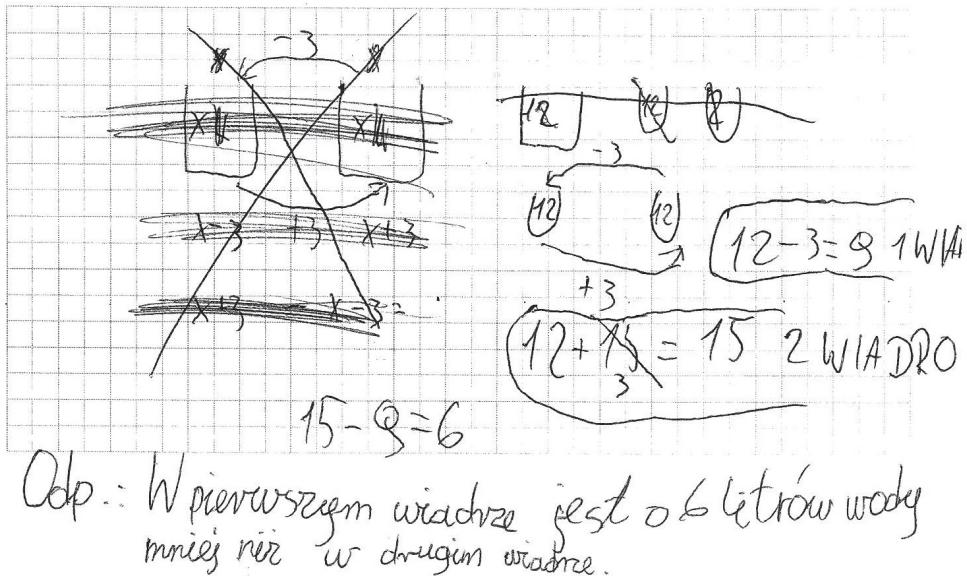 -3
x x
x-3 +3 x+3
x+3 - x-3=
12 12 12
-3
12 12
+3
12-3=9 1 WIA
12+15=15 2 WIADRO
3
15-9=6
Odp.: W pierwszym wiadrze jest o 6 litrów wody
mniej niż w drugim wiadrze.